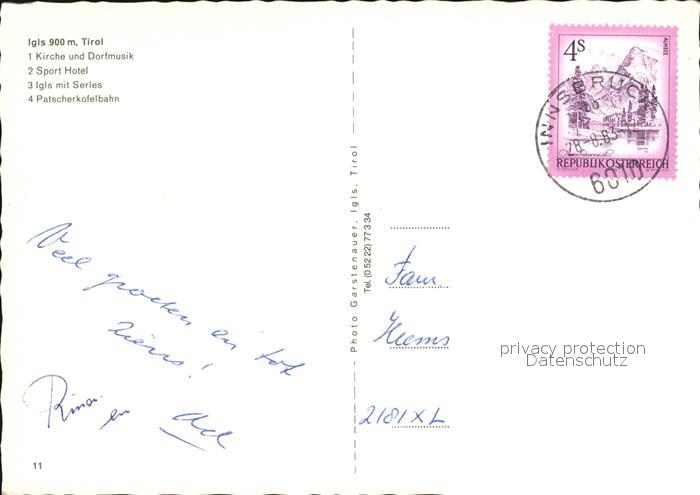 Igls 900 m, Tirol
1 Kirche und Dorfmusik
2 Sport Hotel
3 Igls mit Serles
4 Patscherkofelbahn
Veel groeten en tot
ziens!
Rina en Ad
11
Photo Garstenauer, Igls, Tirol
Tel. (05222) 77334
4S
ALMSEE
REPUBLIK ÖSTERREICH
INNSBRUCK
28.-8.83
6010
Fam.
Hems
2181XL
privacy protection
Datenschutz